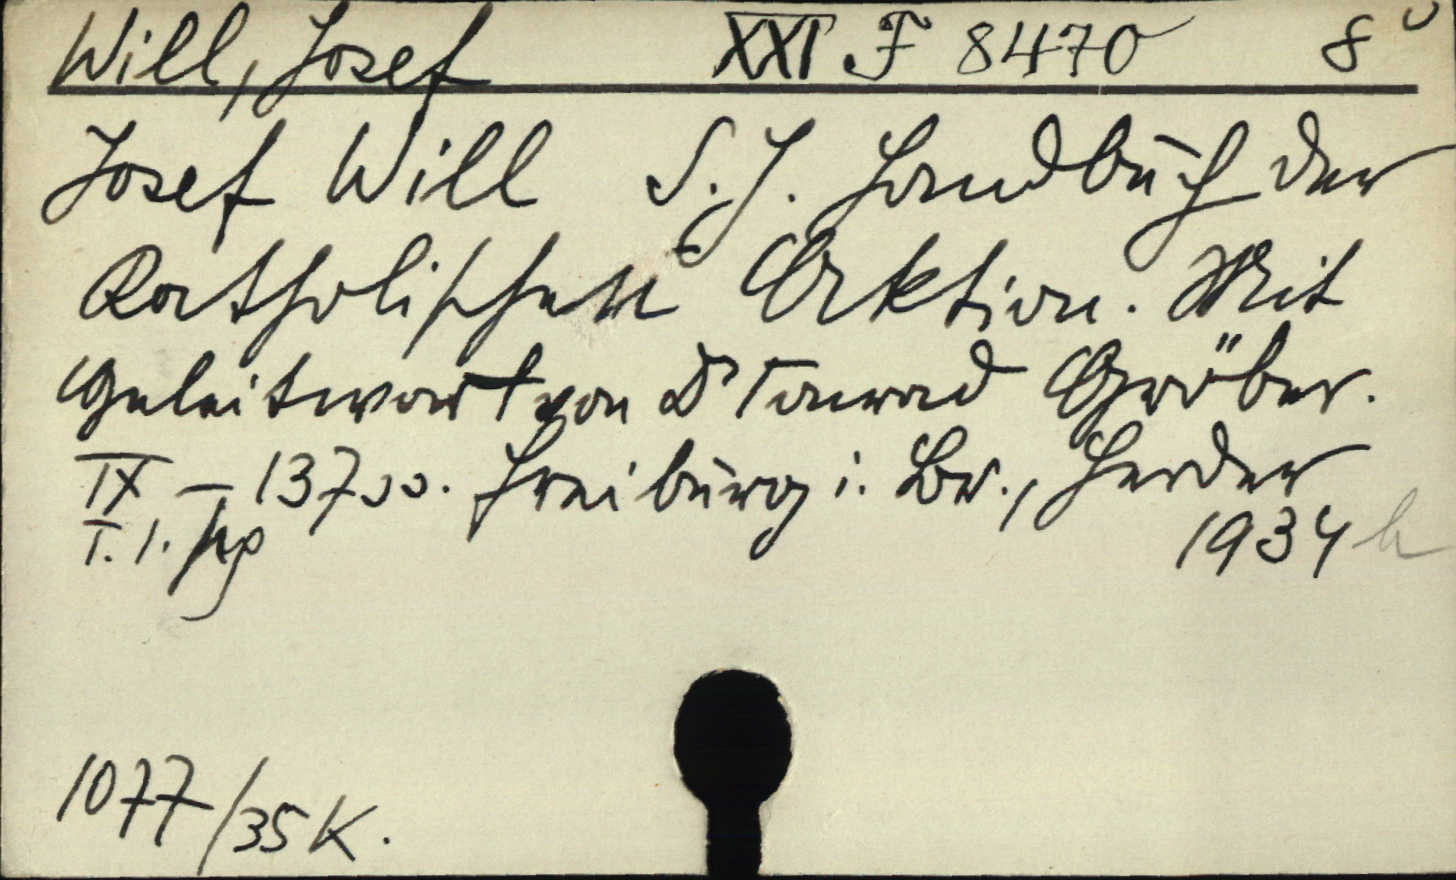 Will, Josef XXI F 8470 8°
Josef Will S. J. Handbuch der
Katholischen Aktion. Mit
Geleitwort von Dr Konrad Gröber.
IX – 137 SS. Freiburg i. Br., Herder
1934
1077/35 K.